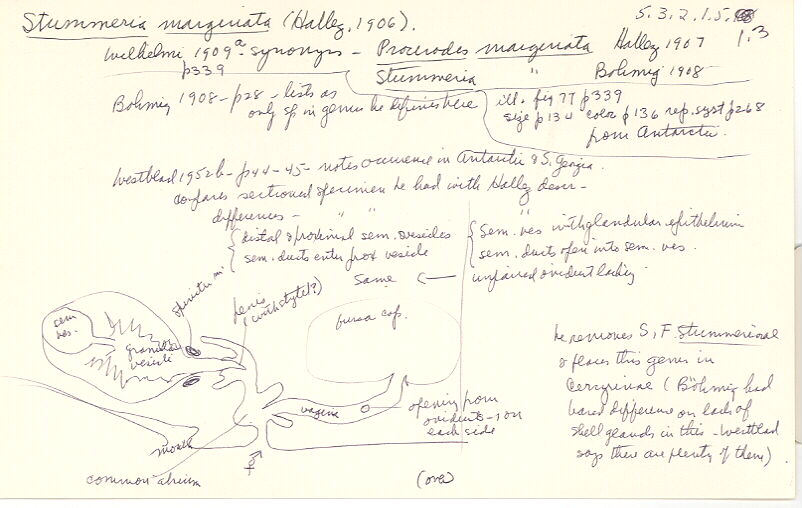 Stummeria marginata (Hallez, 1906).
5.3.2.1.5.
1.3
Wilhelmi 1909a - synonyms - Procerodes marginata Hallez 1907
p339
Stummeria " Böhmig 1908
Böhmig 1908 - p28 - lists as
only sp in genus he defines here
ill. fig 77 p339
size p134 color p136 rep. syst p268
from Antarctic.
Westblad 1952b - p44-45 - notes occurrence in Antarctic & S. Georgia.
compares sectioned specimen he had with Hallez descr -
differences - " "
distal & proximal sem. vesicles
sem. ducts enter prox vesicle
sem. ves with glandular epithelium
sem. ducts open into sem. ves.
same
unpaired oviduct lacking.
he removes S, F. Stummerinae
& places this genus in
Cercyrinae (Böhmig had
based difference on lack of
shell glands in this - Westblad
says there are plenty of them)
sem
ves.
granular
vesicle
sphincter m.
penis
(with stylet?)
bursa cop.
vagina
opening from
oviducts - 1 on
each side
mouth
common atrium
⚥
(over)